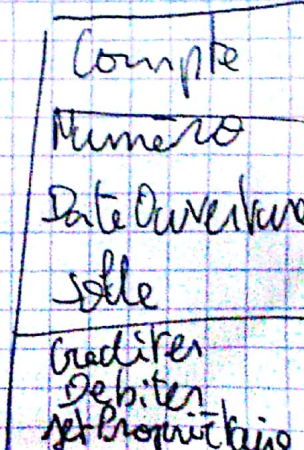 Compte
Numero
DateOuverture
solde
crediter
Debiter
setProprietaire